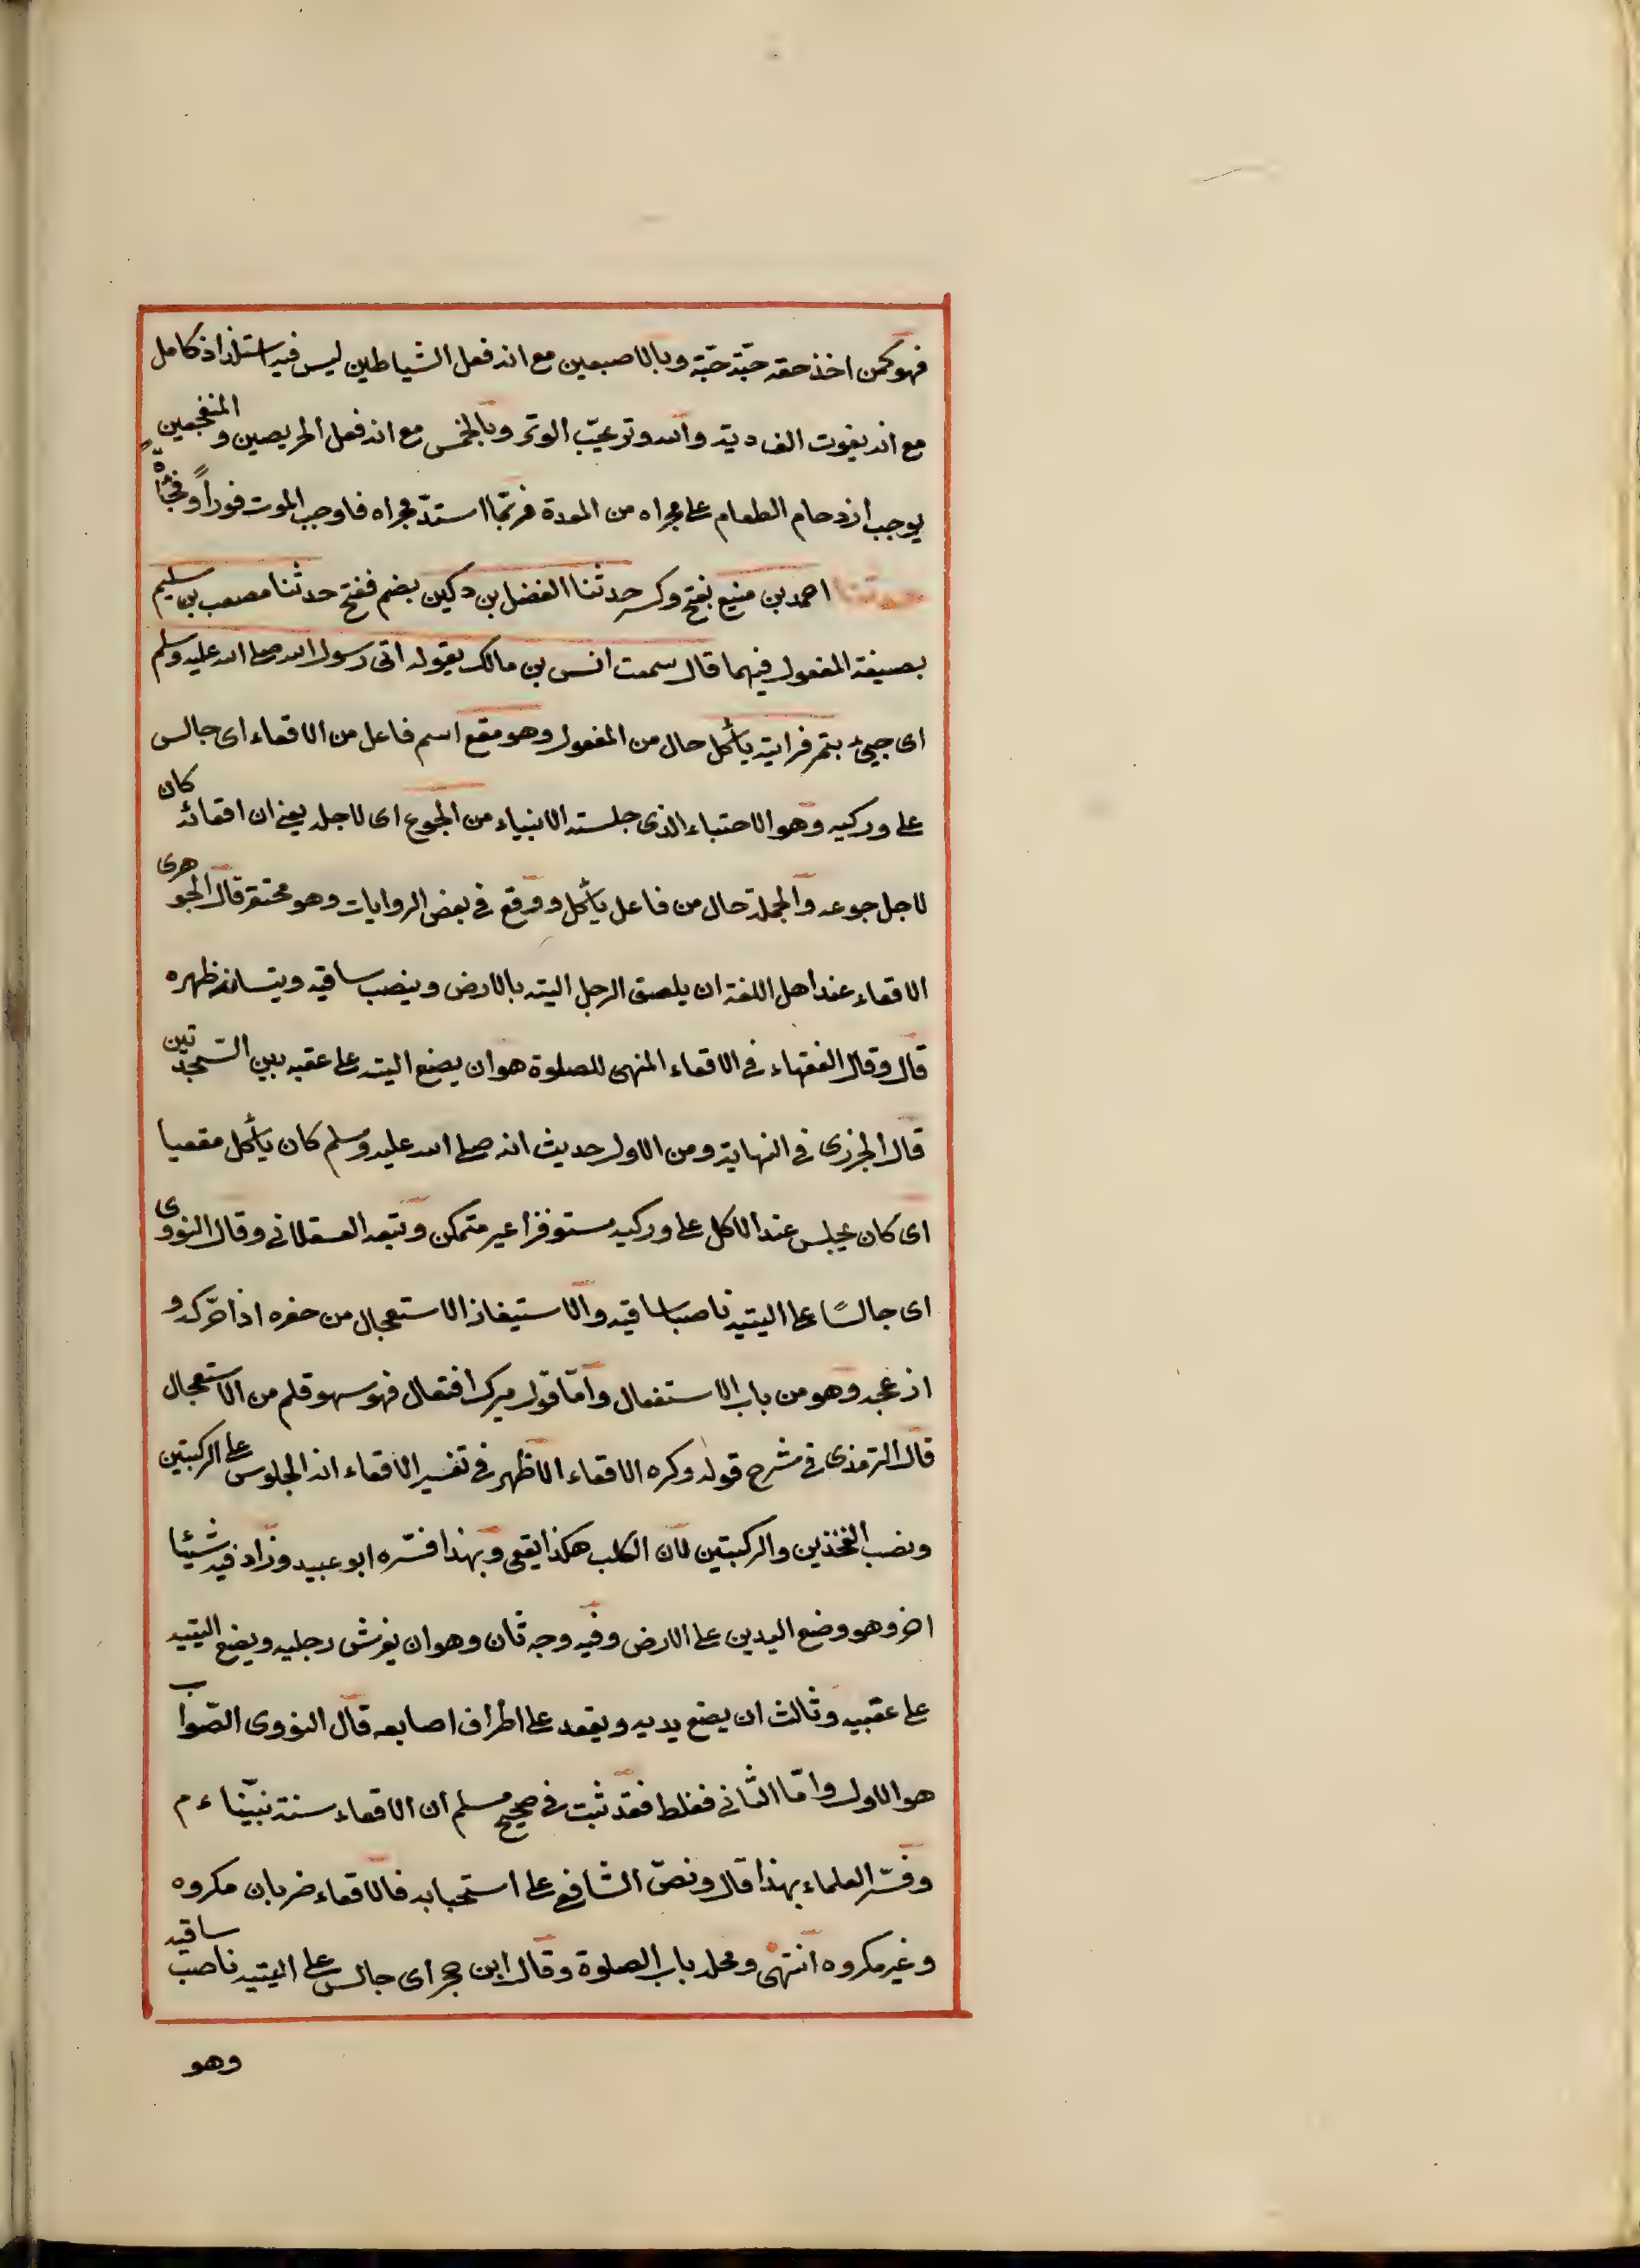 فهو كمن اخذ حقه حبّة حبّة وبالاصبعين مع انه فعل الشياطين ليس فيه استلذاذ كامل
مع انه يفوت الفرديّة والله وتر يحبّ الوتر وبالخمس مع انه فعل الحريصين والمتفجعين
يوجب ازدحام الطعام على مجراه من المعدة فربّما استدّ مجراه فاوجب الموت فوراً وفجأة
حدثنا احمد بن منيع بفتح وكسر حدثنا الفضل بن دكين بضم ففتح حدثنا مصعب بن سليم
بصيغة المفعول فيهما قال سمعت انس بن مالك يقول اتى رسول الله صلى الله عليه وسلم
اى جيئ بتمر فرايته يأكل حال من المفعول وهو مقع اسم فاعل من الاقعاء اى جالس
على وركيه وهو الاحتباء الذى جلسته الانبياء من الجوع اى لاجله يعنى ان اقعائه كان
لاجل جوعه والجملة حال من فاعل يأكل ووقع فى بعض الروايات وهو محتفز قال الجوهرى
الاقعاء عند اهل اللغة ان يلصق الرجل اليته بالارض وينصب ساقيه ويتساند ظهره
قال وقال الفقهاء فى الاقعاء المنهى للصلوة هو ان يضع اليته على عقبه بين السّجدتين
قال الجزرى فى النهاية ومن الاول حديث انه صلى الله عليه وسلم كان يأكل مقعيا
اى كان يجلس عند الاكل على وركيه مستوفزا غير متمكن وتبعه العسقلانى وقال النووى
اى جالسًا على اليتيه ناصبا ساقيه والاستيفاز الاستعجال من حفزه اذا حرّكه و
ازعجه وهو من باب الاستفعال وامّا قول ميرك افتعال فهو سهو قلم من الاستعجال
قال الترمذى فى شرح قوله وكره الاقعاء الاظهر فى تفسير الاقعاء انه الجلوس على الركبتين
ونصب الفخذين والركبتين لان الكلب هكذا يقعى وبهذا فسّره ابو عبيد وزاد فيه شيئا
اخر وهو وضع اليدين على الارض وفيه وجه ثان وهو ان يفرش رجليه ويضع اليتيه
على عقبيه وثالث ان يضع يديه ويقعد على اطراف اصابعه قال النووى الصّواب
هو الاول وامّا الثانى فغلط فقد ثبت فى صحيح مسلم ان الاقعاء سنة نبيّنا ءم
وفسّر العلماء بهذا قال ونصّ الشافعى على استحبابه فالاقعاء ضربان مكروه
وغير مكروه انتهى ومحله باب الصلوة وقال ابن حجر اى جالس على اليتيه ناصب ساقيه
وهو